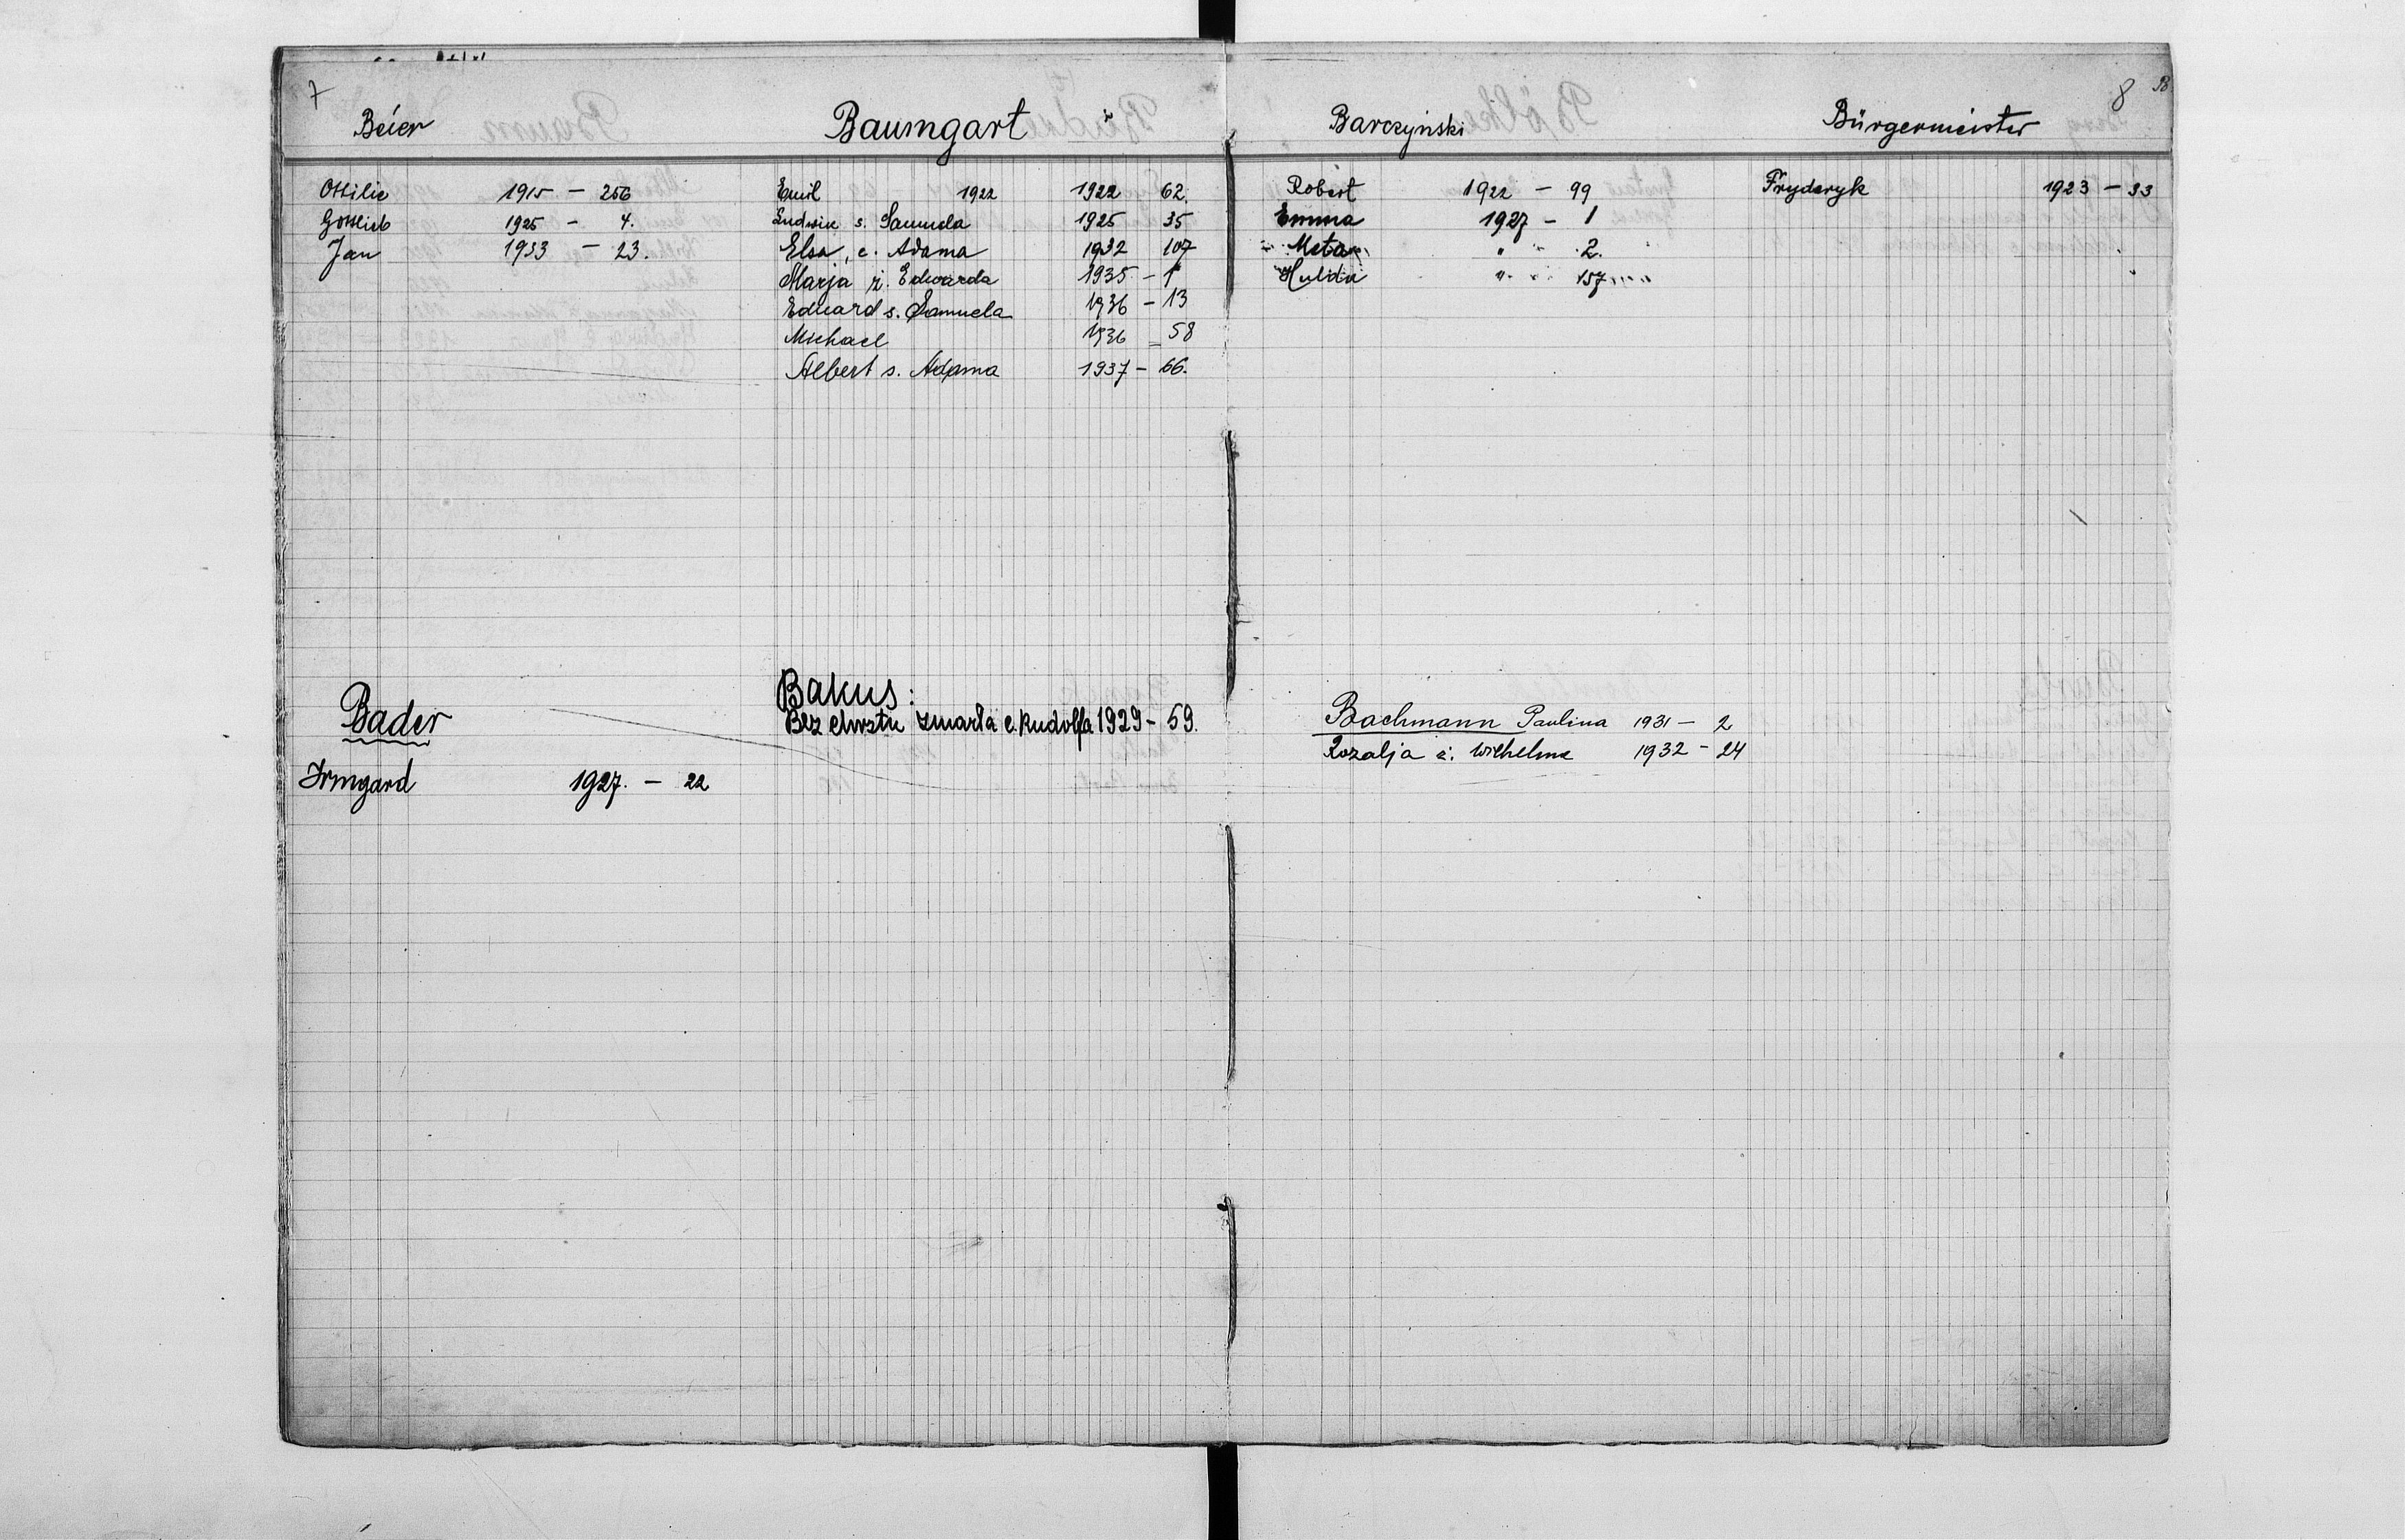 7
Beier
Ottilie 1915 - 256
Gottlieb 1925 - 4.
Jan 1933 - 23.
Baumgart
Emil 1922 1922 62.
Ludwik s. Samuela 1925 35
Elsa, c. Adama 1932 107
Marja ż. Edwarda 1935 - 1
Eduard s. Samuela 1936 - 13
Michael 1936 - 58
Albert s. Adama 1937 - 66.
Bader
Irmgard 1927. - 22
Bakus:
Bez chrztu zmarła c. Rudolfa 1929 - 59.
8 B
Barczyński
Robert 1922 - 99
Emma 1927 - 1
Meta " - 2.
Hulda " - 157
Bürgermeister
Fryderyk 1923 - 33
Bachmann Paulina 1931 - 2
Rozalja ż. Wilhelma 1932 - 24